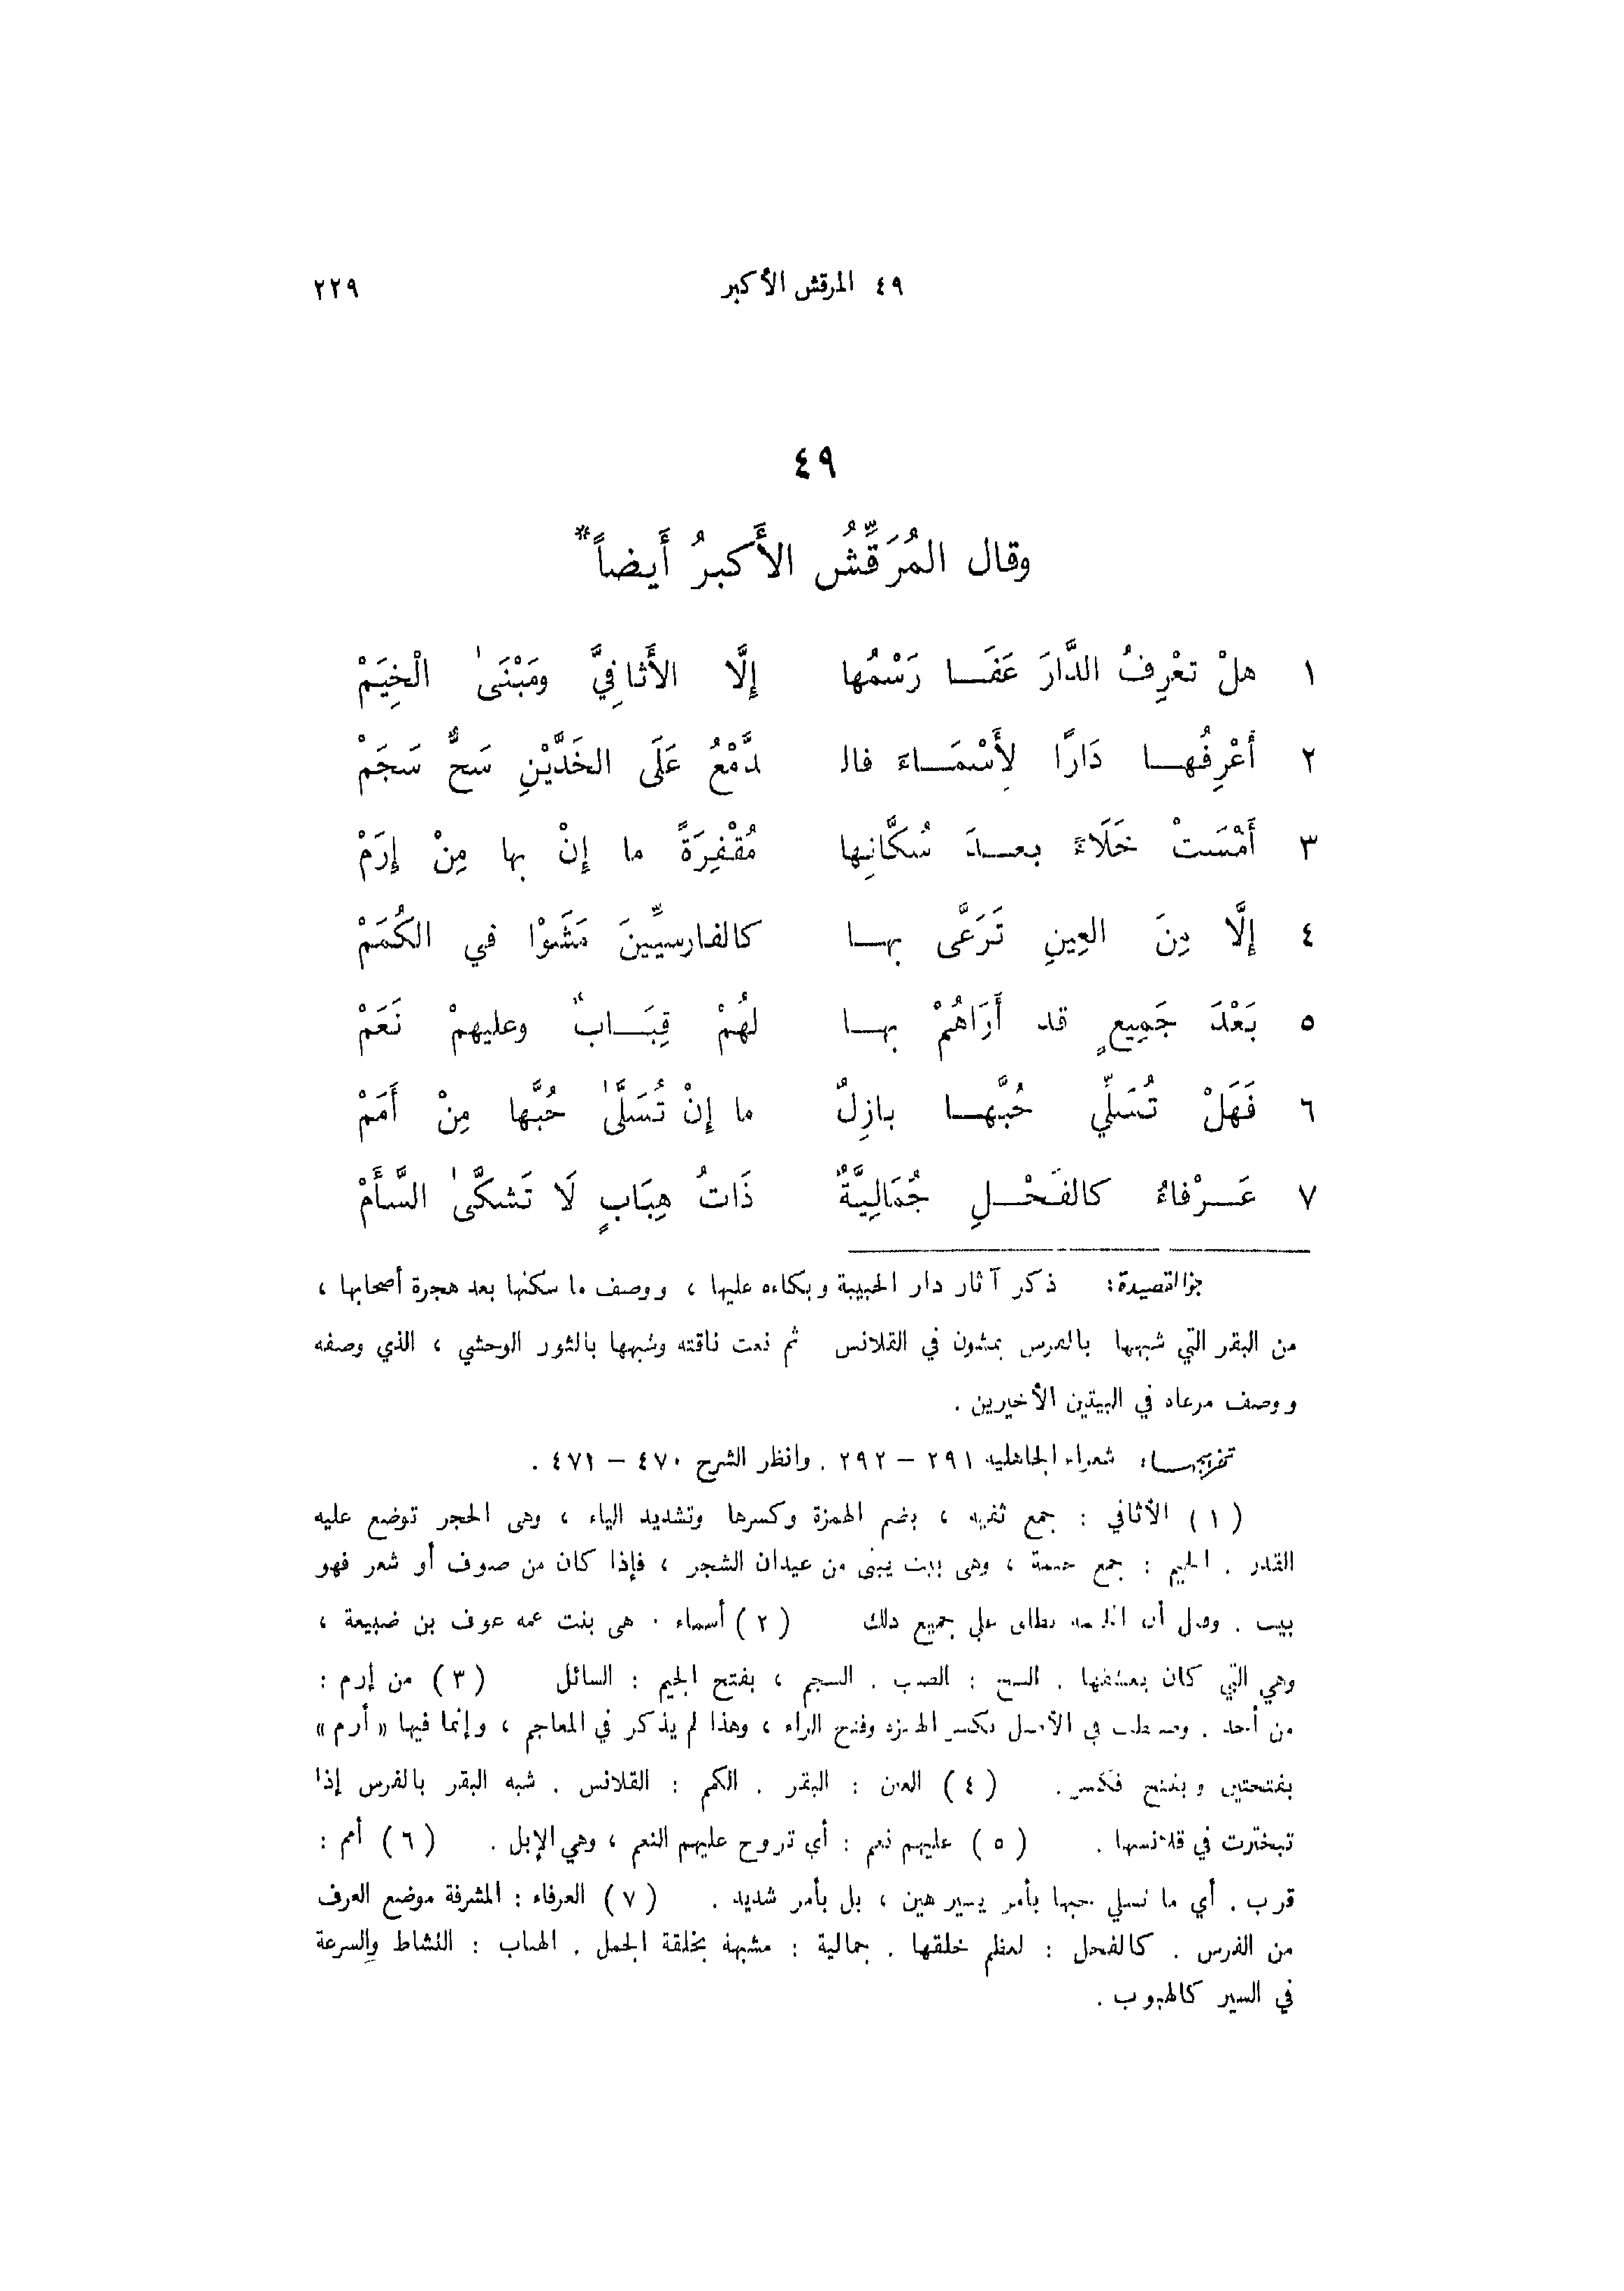 ٤٩ المرقش الأكبر ٢٢٩
٤٩
وقال المُرَقِّشُ الأَكبرُ أَيضاً*
١ هلْ تعْرِفُ الدَّارَ عَفَـــا رَسْمُها إِلَّا الأَثافِيَّ ومَبْنَىٰ الْخِيَمْ
٢ أَعْرِفُهـــا دَارًا لِأَسْمَـــاءَ فالـ دَّمْعُ عَلَى الخَدَّيْنِ سَحٌّ سَجَمْ
٣ أَمْسَتْ خَلَاءً بعـــدَ سُكَّانِها مُقْفِرَةً ما إِنْ بها مِنْ إِرَمْ
٤ إِلَّا مِنَ العِينِ تَرَعَّى بهـــا كالفارسيِّينَ مَشَوْا في الكُمَمْ
٥ بَعْدَ جَمِيعٍ قد أَرَاهُمْ بهـــا لهُمْ قِبَـــابٌ وعليهمْ نَعَمْ
٦ فَهَلْ تُسَلِّي حُبَّهـــا بازِلٌ ما إِنْ تُسَلَّىٰ حُبَّها مِنْ أَمَمْ
٧ عَـــرْفاءُ كالفَحْـــلِ جُمَالِيَّةٌ ذَاتُ هِبَابٍ لَا تَشكَّىٰ السَّأَمْ
جوّ القصيدة: ذكر آثار دار الحبيبة وبكاءه عليها ، ووصف ما سكنها بعد هجرة أصحابها ،
من البقر التي شبهها بالفرس يمشون في القلانس ثم نعت ناقته وشبهها بالثور الوحشي ، الذي وصفه
ووصف مرعاه في البيتين الأخيرين .
تخريجهـــا: شعراء الجاهلية ٢٩١ – ٢٩٢ . وانظر الشرح ٤٧٠ – ٤٧١ .
( ١ ) الأثافي : جمع أثفية ، بضم الهمزة وكسرها وتشديد الياء ، وهى الحجر توضع عليه
القدر . الخيم : جمع خيمة ، وهى بيت يبنى من عيدان الشجر ، فإذا كان من صوف أو شعر فهو
بيت . وقيل أن الخيمة تطلق على جميع ذلك ( ٢ ) أسماء . هى بنت عمه عوف بن ضبيعة ،
وهي التي كان يعشقها . السح : الصب . السجم ، بفتح الجيم : السائل ( ٣ ) من إرم :
من أحد . وضبطت في الأصل بكسر الهمزة وفتح الراء ، وهذا لم يذكر في المعاجم ، وإنما فيها « أرم »
بفتحتين وبفتح فكسر . ( ٤ ) العين : البقر . الكمم : القلانس . شبه البقر بالفرس إذا
تبخترت في قلانسها . ( ٥ ) عليهم نعم : أي تروح عليهم النعم ، وهي الإبل . ( ٦ ) أمم :
قرب . أي ما تسلي حبها بأمر يسير هين ، بل بأمر شديد . ( ٧ ) العرفاء : المشرفة موضع العرف
من الفرس . كالفحل : لعظم خلقها . جمالية : مشبهة بخلقة الجمل . الهباب : النشاط والسرعة
في السير كالهبوب .